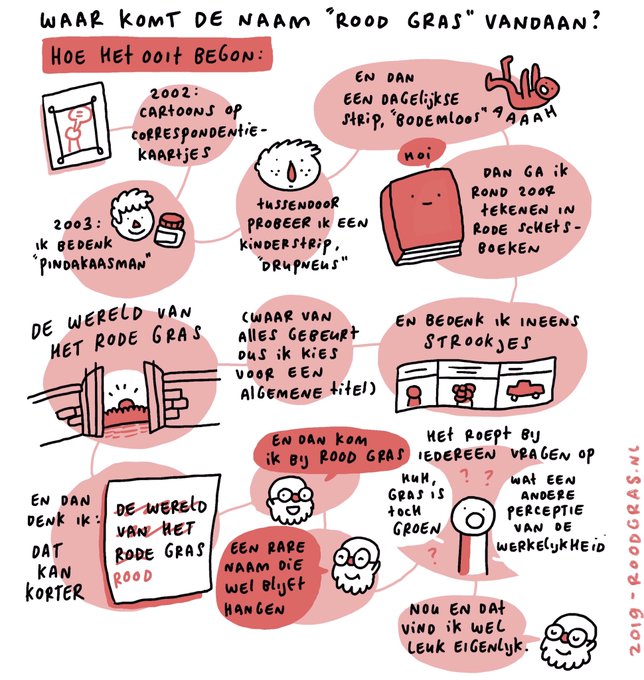 WAAR KOMT DE NAAM "ROOD GRAS" VANDAAN?
HOE HET OOIT BEGON:
2002:
CARTOONS OP
CORRESPONDENTIE-
KAARTJES
2003:
IK BEDENK
"PINDAKAASMAN"
TUSSENDOOR
PROBEER IK EEN
KINDERSTRIP,
"DRUPNEUS"
EN DAN
EEN DAGELIJKSE
STRIP, "BODEMLOOS"
AAAAH
HOI
DAN GA IK
ROND 2007
TEKENEN IN
RODE SCHETS-
BOEKEN
EN BEDENK IK INEENS
STROOKJES
(WAAR VAN
ALLES GEBEURT
DUS IK KIES
VOOR EEN
ALGEMENE TITEL)
DE WERELD VAN
HET RODE GRAS
EN DAN
DENK IK:
DAT
KAN
KORTER
DE WERELD
VAN HET
RODE GRAS
ROOD
EN DAN KOM
IK BIJ ROOD GRAS
EEN RARE
NAAM DIE
WEL BLIJFT
HANGEN
HET ROEPT BIJ
IEDEREEN VRAGEN OP
HUH,
GRAS IS
TOCH
GROEN
? ?
?
WAT EEN
ANDERE
PERCEPTIE
VAN DE
WERKELIJKHEID
NOU EN DAT
VIND IK WEL
LEUK EIGENLIJK.
2019 - ROODGRAS.NL